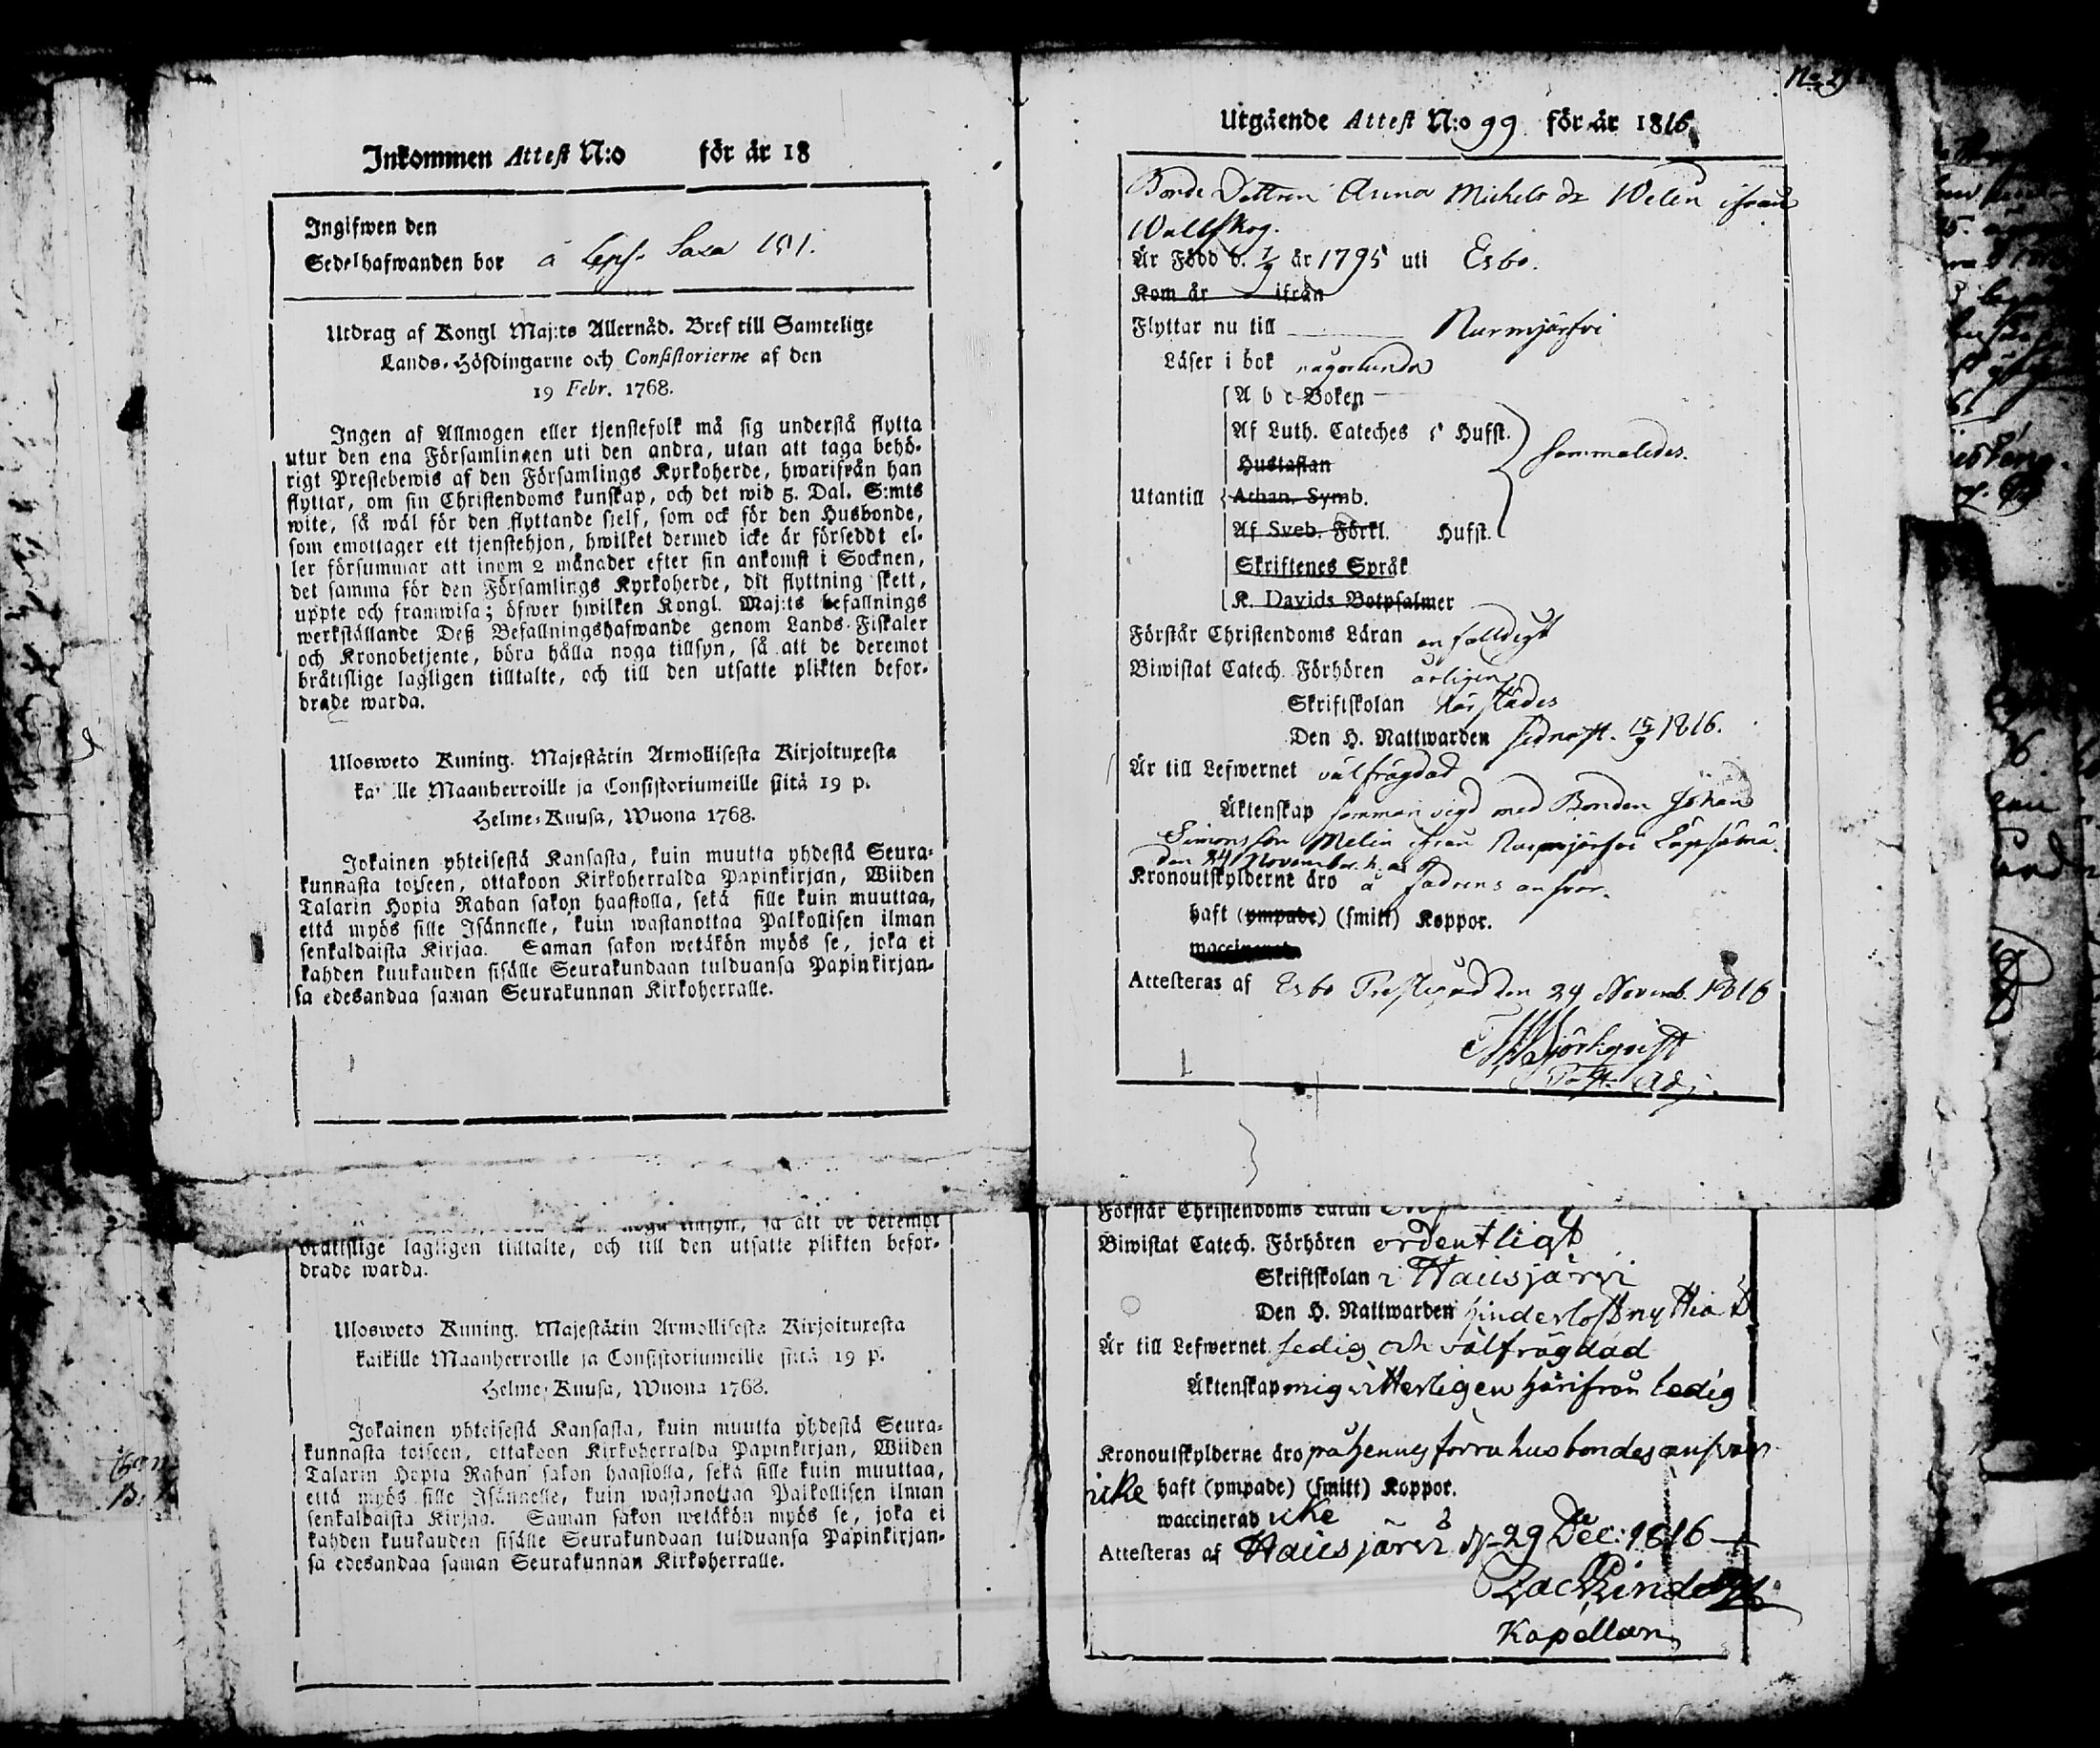 Inkommen Attest N:o för år 18
Ingifwen den
Sedelhafwanden bor å
Utdrag af Kongl Maj:ts Allernåd. Bref till Samtelige
Lands-Höfdingarne och Consistorierne af den
19 Febr. 1768.
Ingen af Allmogen eller tjenstefolk må sig understå flytta
utur den ena Församlingen uti den andra, utan att taga behö-
rigt Prestebewis af den Församlings Kyrkoherde, hwarifrån han
flyttar, om sin Christendoms kunskap, och det wid 5. Dal. S:mts
wite, så wäl för den flyttande sielf, som ock för den Husbonde,
som emottager ett tjenstehjon, hwilket dermed icke är försedt el-
ler försummar att inom 2 månader efter sin ankomst i Socknen,
det samma för den Församlings Kyrkoherde, dit flyttning skett,
uppte och framwisa; öfwer hwilken Kongl. Maj:ts befallnings
werkställande Deß Befallningshafwande genom Lands-Fiskaler
och Kronobetjente, böra hålla noga tillsyn, så att de deremot
bråtislige lagligen tilltalte, och till den utsatte plikten befor-
drade warda.
Ulosweto Kuning. Majestätin Armollisesta Kirjoituxesta
ka lle Maanherroille ja Consistoriumeille siitä 19 p.
Helme-Kuusa, Wuona 1768.
Jokainen yhteisestä Kansasta, kuin muutta yhdestä Seura-
kunnasta toiseen, ottakoon Kirkoherralda Papinkirjan, Wiiden
Talarin Hopia Rahan sakon haastolla, sekä sille kuin muuttaa,
että myös sille Isännelle, kuin wastanottaa Palkollisen ilman
senkaldaista Kirjaa. Saman sakon wetäkön myös se, joka ei
kahden kuukauden sisälle Seurakundaan tulduansa Papinkirjan-
sa edesandaa saman Seurakunnan Kirkoherralle.
noga tillsyn, så att de deremot
bråtislige lagligen tilltalte, och till den utsatte plikten befor-
drade warda.
Ulosweto Kuning. Majestätin Armollisesta Kirjoituxesta
kaikille Maanherroille ja Consistoriumeille siitä 19 p.
Helme-Kuusa, Wuona 1768.
Jokainen yhteisestä Kansasta, kuin muutta yhdestä Seura-
kunnasta toiseen, ottakoon Kirkoherralda Papinkirjan, Wiiden
Talarin Hopia Rahan sakon haastolla, sekä sille kuin muuttaa,
että myös sille Isännelle, kuin wastanottaa Palkollisen ilman
senkaldaista Kirjaa. Saman sakon wetäkön myös se, joka ei
kahden kuukauden sisälle Seurakundaan tulduansa Papinkirjan-
sa edesandaa saman Seurakunnan Kirkoherralle.
Utgående Attest N:o 99 för år 1816
Bonde Dottren Anna Michels dr Welin ifrån
Wallskog.
Är Född d. 1/9 år 1795 uti Esbo.
Kom år ifrån
Flyttar nu till Nurmjärfvi
Läser i bok någorlunda
A b c-Boken
Af Luth. Cateches 5 Hufst.
Hustaflan
sammaledes.
Utantill Athan. Symb.
Af Sveb. Förkl. Hufst.
Skriftenes Språk
K. Davids Botpsalmer
Förstår Christendoms Läran enfalldigt
Biwistat Catech. Förhören årligen
Skriftskolan härstädes
Den H. Nattwarden sednast. 15/9 1816.
Är till Lefwernet välfrägdad
Äktenskap sammanvigd med Bonden Johan
Simonsson Melin ifrån Nurmjärfvi
den 24 November h. a.
Kronoutskylderne äro å fadrens ansvar.
haft (ympade) (smitt) Koppor.
waccinerad
Attesteras af Esbo Prestegård den 24 Novemb. 1816
Björkqvist
Past. Adj.
Förstår Christendoms Läran
Biwistat Catech. Förhören ordentligt
Skriftskolan i Hausjärvi
Den H. Nattwarden hinderlöst nyttiat
Är till Lefwernet sedig och välfrägdad
Äktenskap mig vitterligen härifrån ledig
Kronoutskylderne äro på hennes förra husbondes answar
icke haft (ympade) (smitt) Koppor.
waccinerad icke
Attesteras af Hausjärvi d. 29 Dec: 1816
Zach Lindqvist
Kapellan